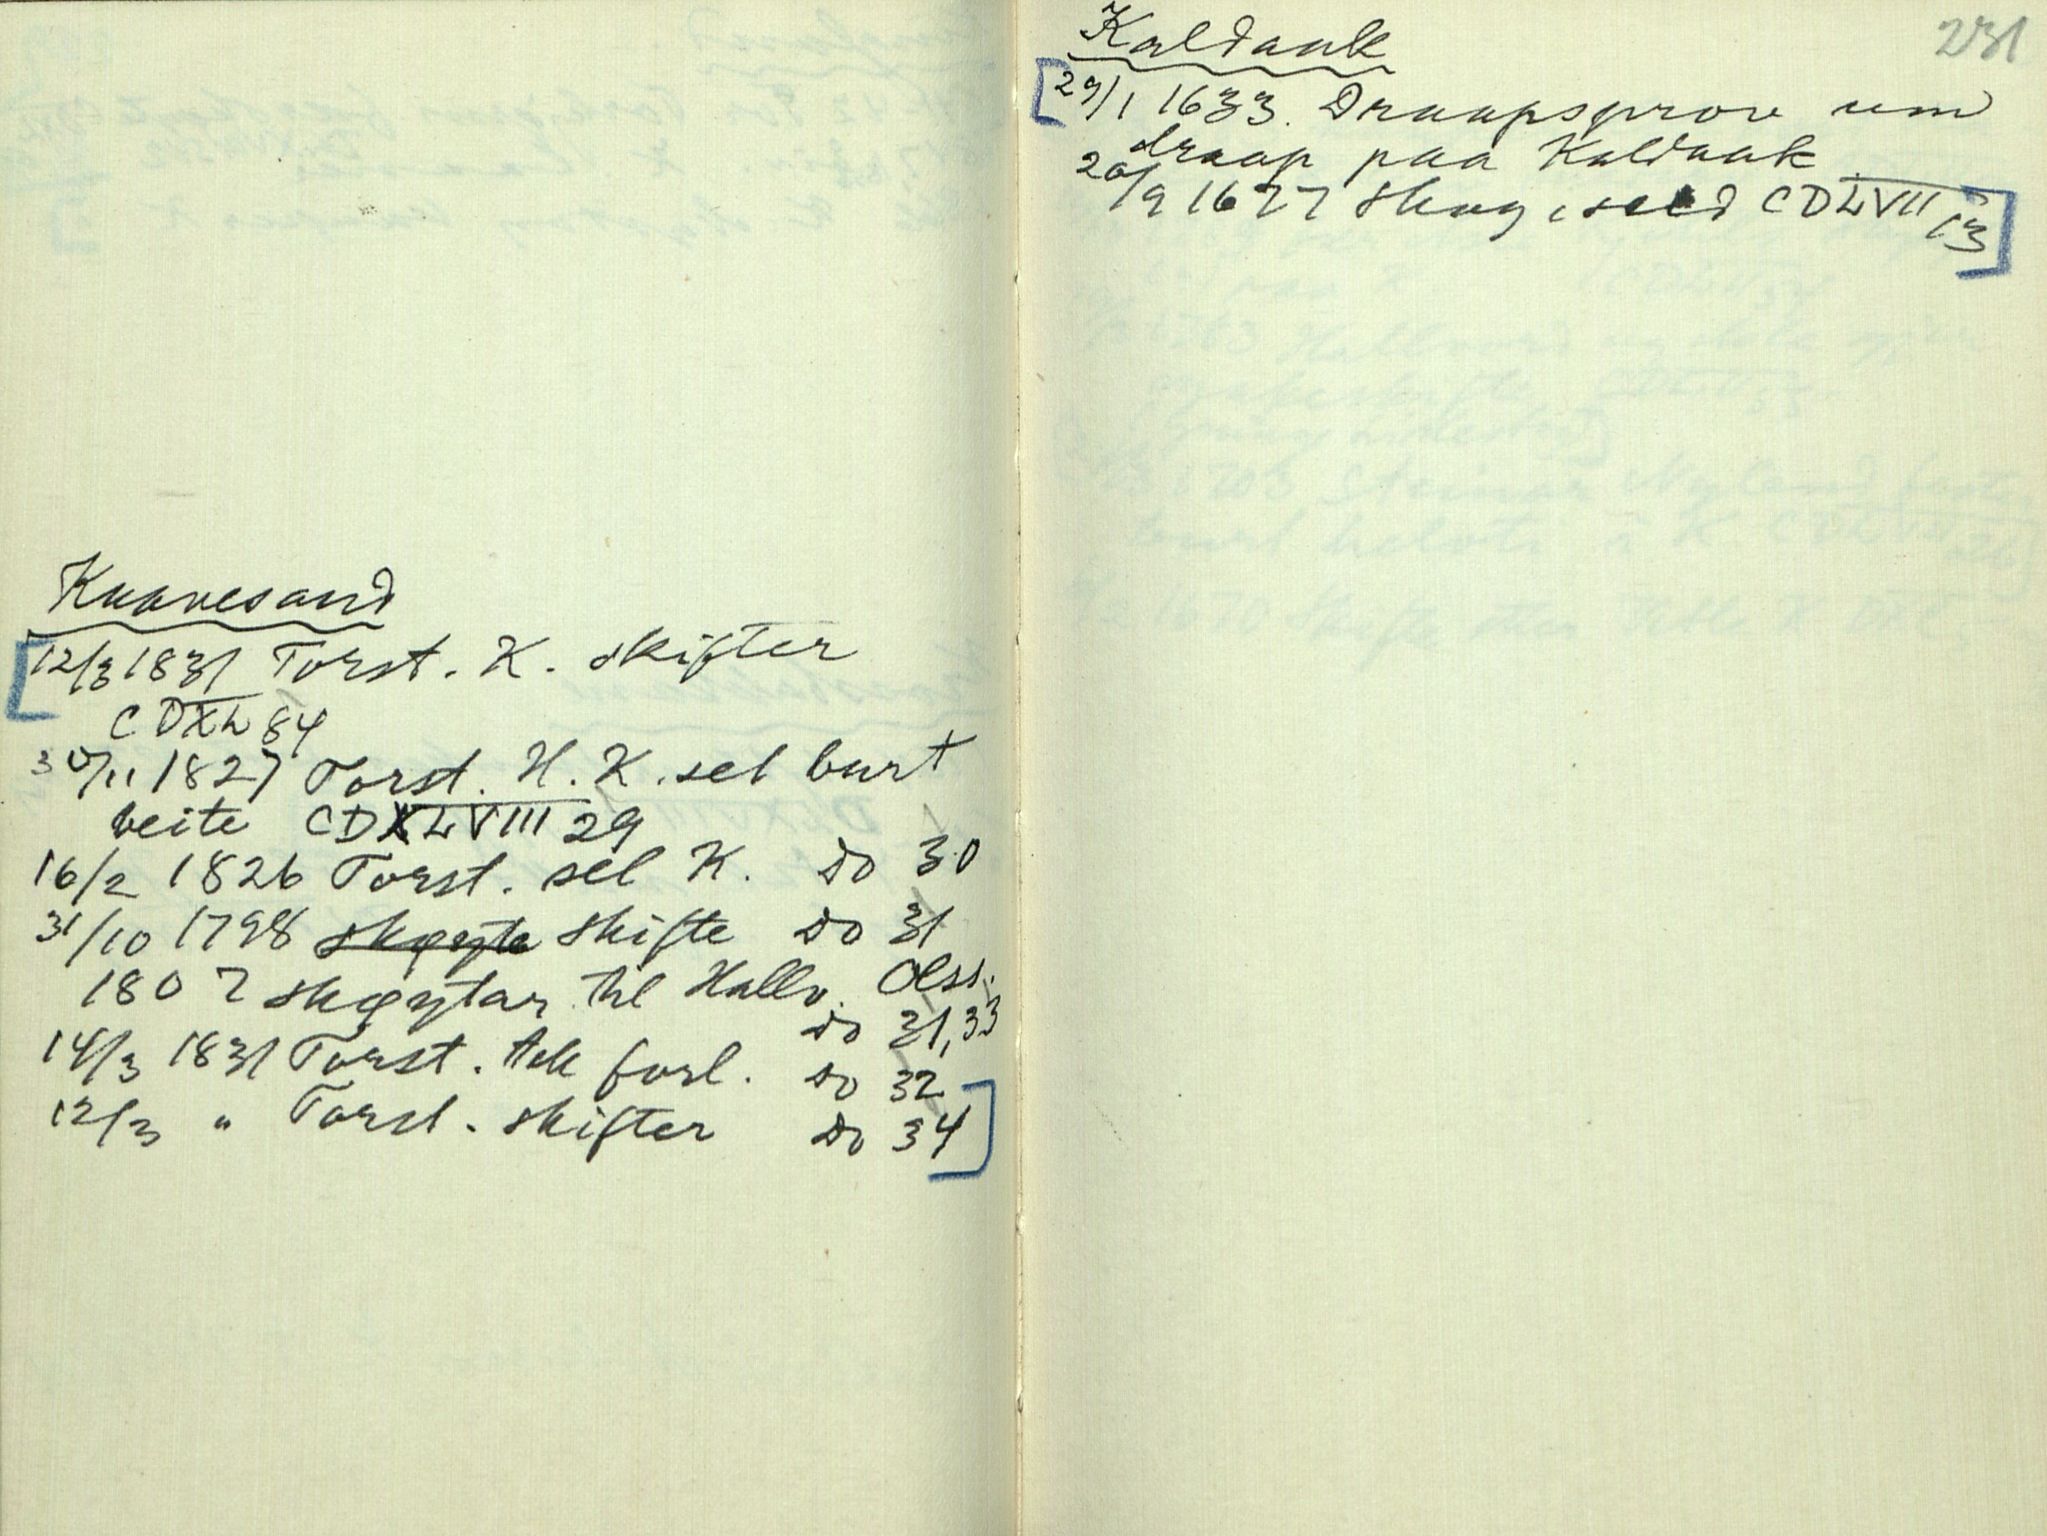 Knavesand
12/3 1831 Torst. K. skifter
CDXL 84
30/11 1827 Torst. H. K. sel burt
beite CDXLVIII 29
16/2 1826 Torst. sel K. Do 30
31/10 1798 skøyte skifte Do 31
1807 skøytar til Hallv. Olss.
Do 31, 33
14/3 1831 Torst. tek forl. Do 32
12/3 " Torst. skifter Do 34
231
Kaldaak
29/1 1633. Draapsprov um
draap paa Kaldaak
20/9 1677 Skog, seld CDLVII 13